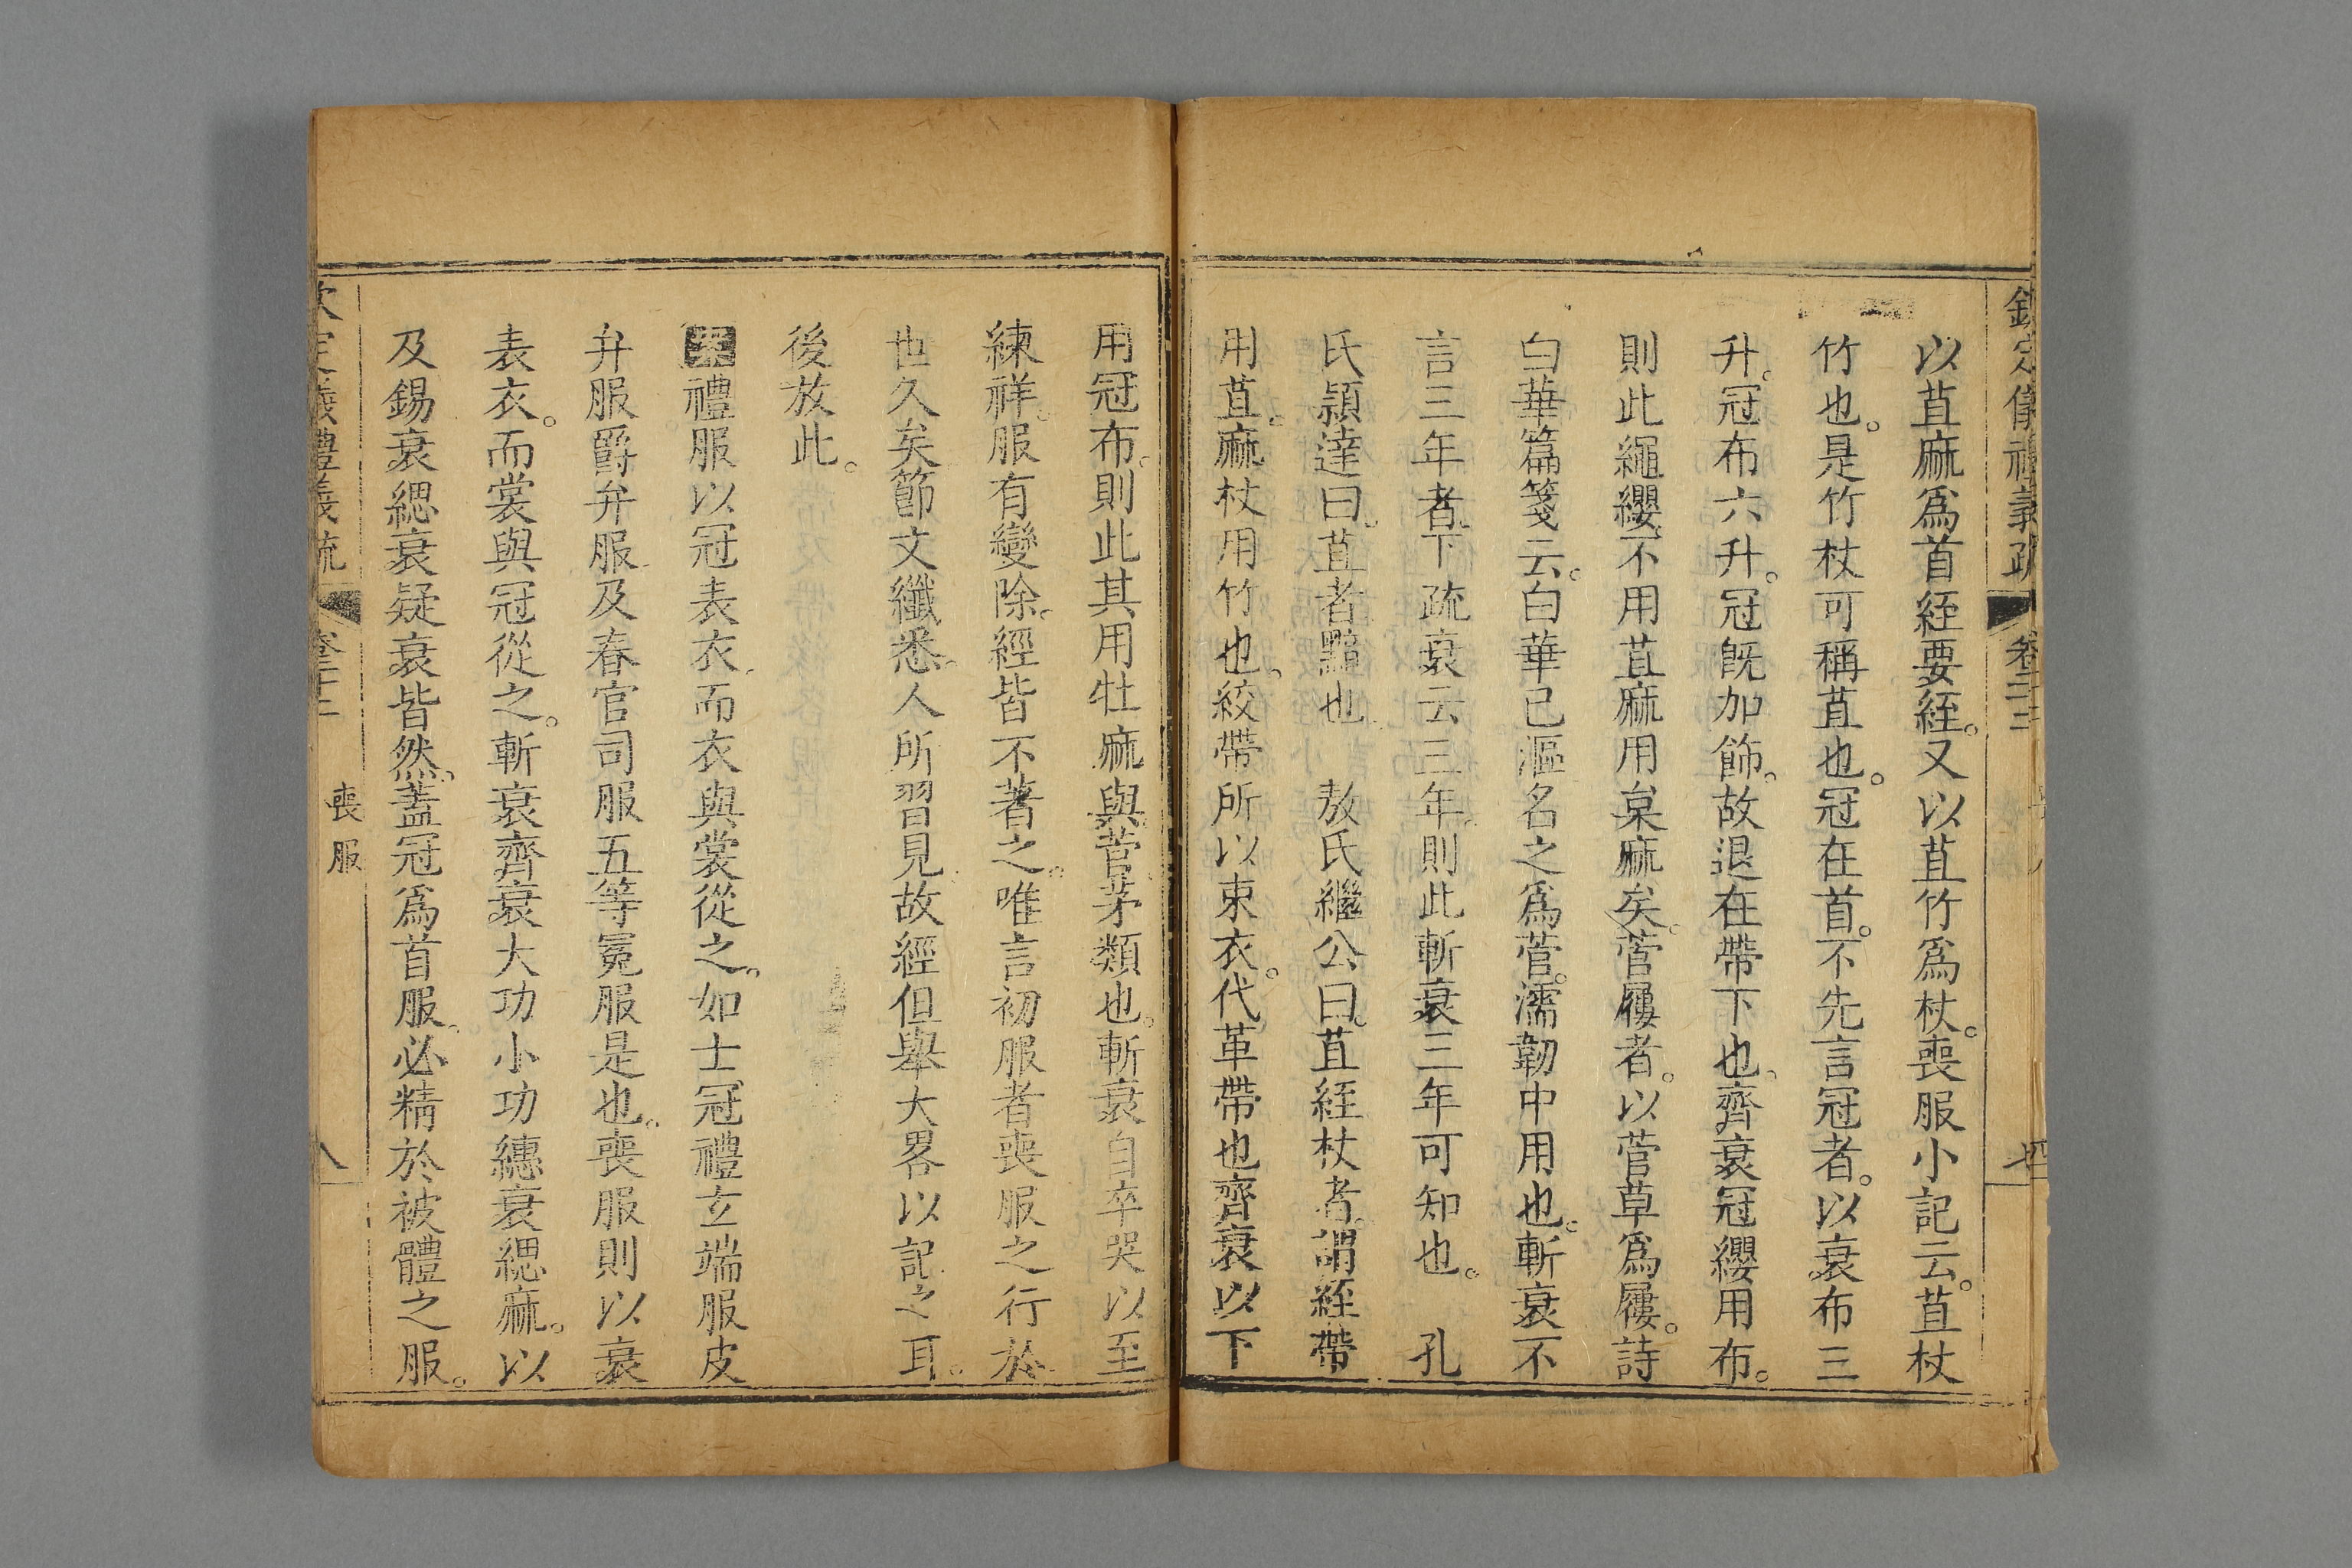 以苴麻爲首絰要絰。又以苴竹爲杖。喪服小記云。苴杖
竹也。是竹杖可稱苴也。冠在首。不先言冠者。以衰布三
升。冠布六升。冠旣加飾。故退在帶下也。齊衰冠纓用布。
則此繩纓。不用苴麻用枲麻矣。菅屨者。以菅草爲屨。詩
白華篇箋云。白華已漚名之爲菅。濡韌中用也。斬衰不
言三年者。下疏衰云三年。則此斬衰三年可知也。 孔
氏穎達曰。苴者黯也 敖氏繼公曰。苴絰杖者。謂絰帶
用苴。麻杖用竹也。絞帶所以束衣。代革帶也齊衰以下
用冠布。則此其用牡麻與菅茅類也。斬衰自卒哭以至
練祥。服有變除。經皆不著之。唯言初服者喪服之行於
世久矣節文纖悉。人所習見故經但舉大畧以記之耳。
後放此。
案禮服以冠表衣。而衣與裳從之。如士冠禮玄端服皮
弁服爵弁服及春官司服五等冕服是也。喪服則以衰
表衣。而裳與冠從之。斬衰齊衰大功小功繐衰緦麻。以
及錫衰緦衰疑衰皆然。蓋冠爲首服。必精於被體之服。
喪服